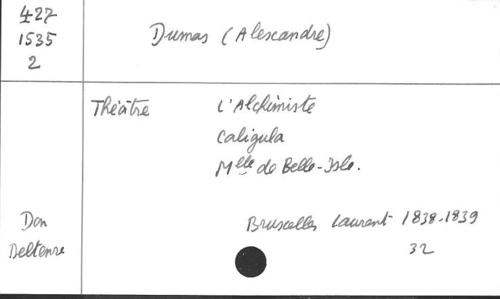 427
1535
2
Dumas (Alexandre)
Théâtre L'Alchimiste
Caligula
Mlle de Belle-Isle.
Don
Deltenre
Bruxelles Laurent 1838-1839
32